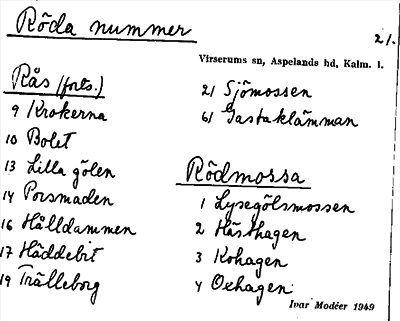 Röda nummer
21.
Virserums sn, Aspelands hd, Kalm. l.
Rås (forts.)
9 Krokerna
10 Bolet
13 Lilla gölen
14 Porsmaden
16 Hålldammen
17 Häddebit
19 Trälleborg
21 Sjömossen
61 Gastaklämman
Rödmossa
1 Lysegölsmossen
2 Hästhagen
3 Kohagen
4 Oxhagen
Ivar Modéer 1949